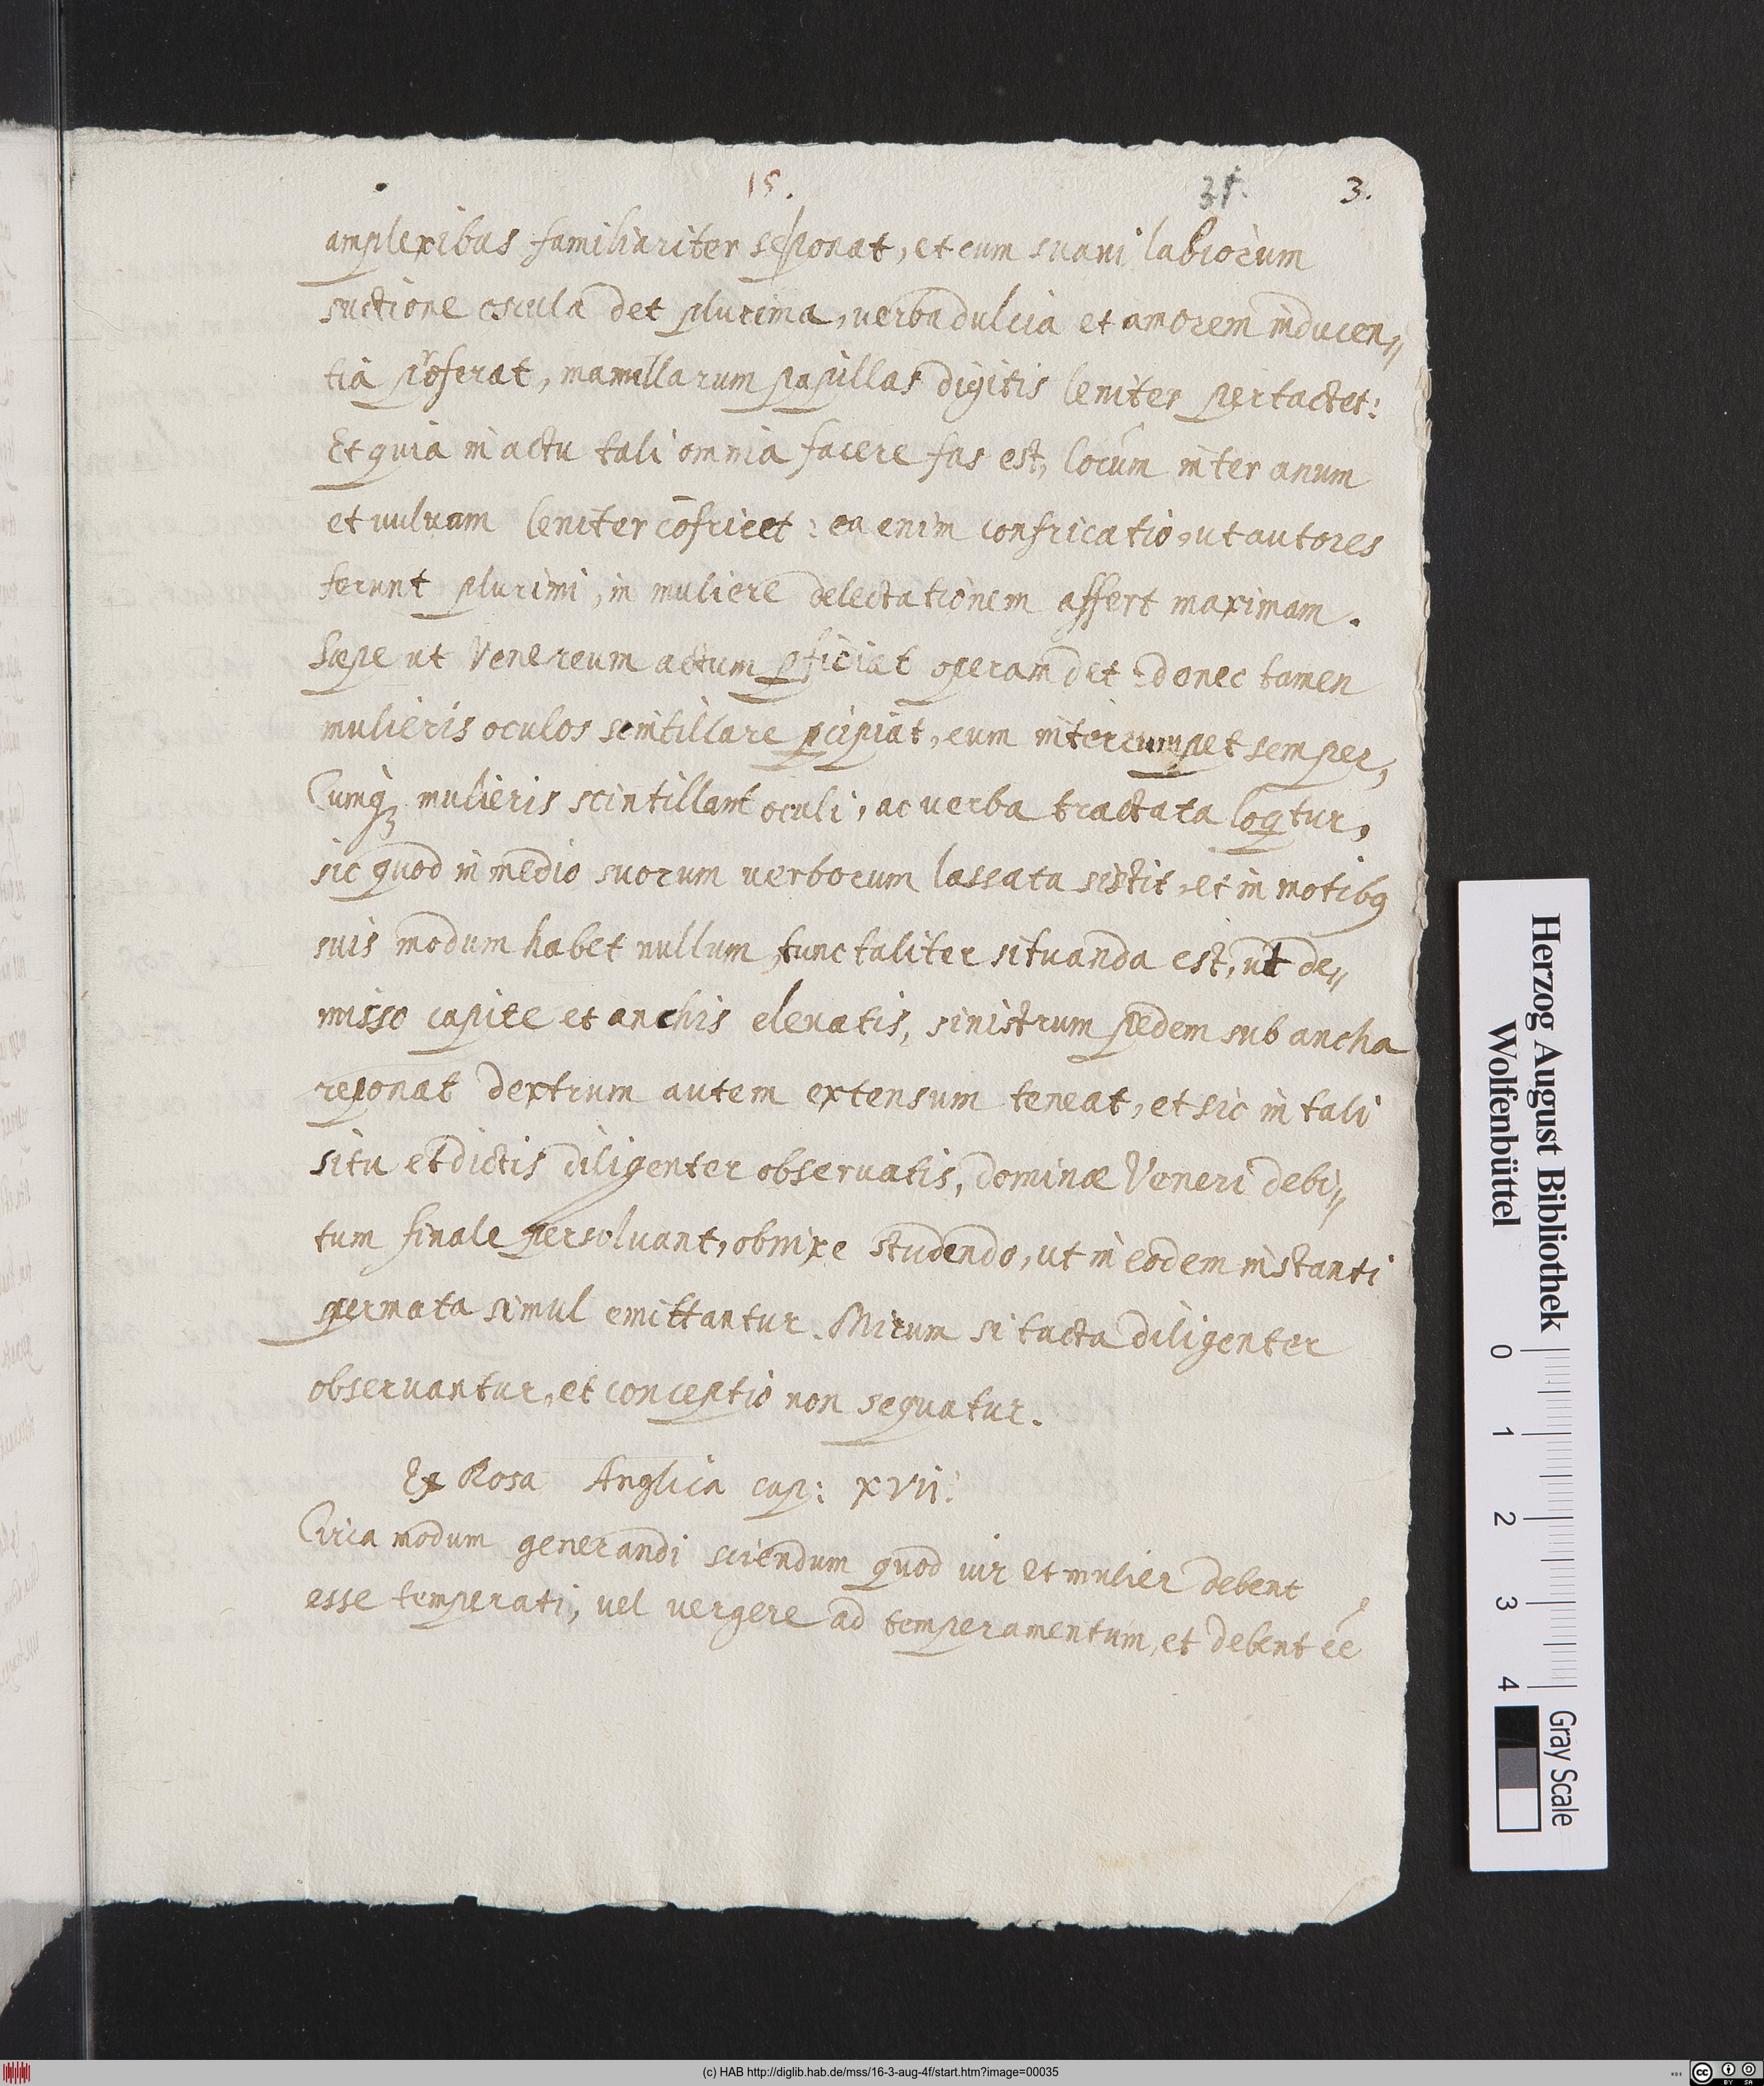 15.
31.
3.
amplexibus familiariter seponat, et cum suavi labiorum
suctione oscula det plurima, verba dulcia et amorem inducen//
tia p̃oferat, mamillarum papillas digitis leniter pertactet:
Et quia in actu tali omnia facere fas est, locũm inter anum
et vulvam leniter cõfricet: ea enim confricatio, ut autores
ferunt plurimi, in muliere delectationem affert maximam.
Sæpe ut Venereum actum ꝑficiat operam det: donec tamen
mulieris oculos scintillare ꝑcipiat, eum interrumpet semper,
Cumqꝫ mulieris scintillant oculi, ac verba tractata loqtur,
sic quod in medio suorum verborum lassata sistit, et in motibꝰ
suis modum habet nullum, tunc taliter situanda est, ut de//
misso capite et anchis elevatis, sinistrum pedem sub ancha
reponat dextrum autem extensum teneat, et sic in tali
situ et dictis diligenter observatis, dominæ Veneri debi//
tum finale persolvant, obnixe studendo, ut in eodem instanti
spermata simul emittantur. Mirum si tacta diligenter
observantur, et conceptio non sequatur.
Ex Rosa Anglica cap: XVII.
Circa modum generandi sciendum quod vir et mulier debent
esse temperati, vel vergere ad temperamentum, et debent ẽe
Herzog August Bibliothek
Wolfenbüttel
0 1 2 3 4
Gray Scale
(c) HAB http://diglib.hab.de/mss/16-3-aug-4f/start.htm?image=00035
cc BY SA